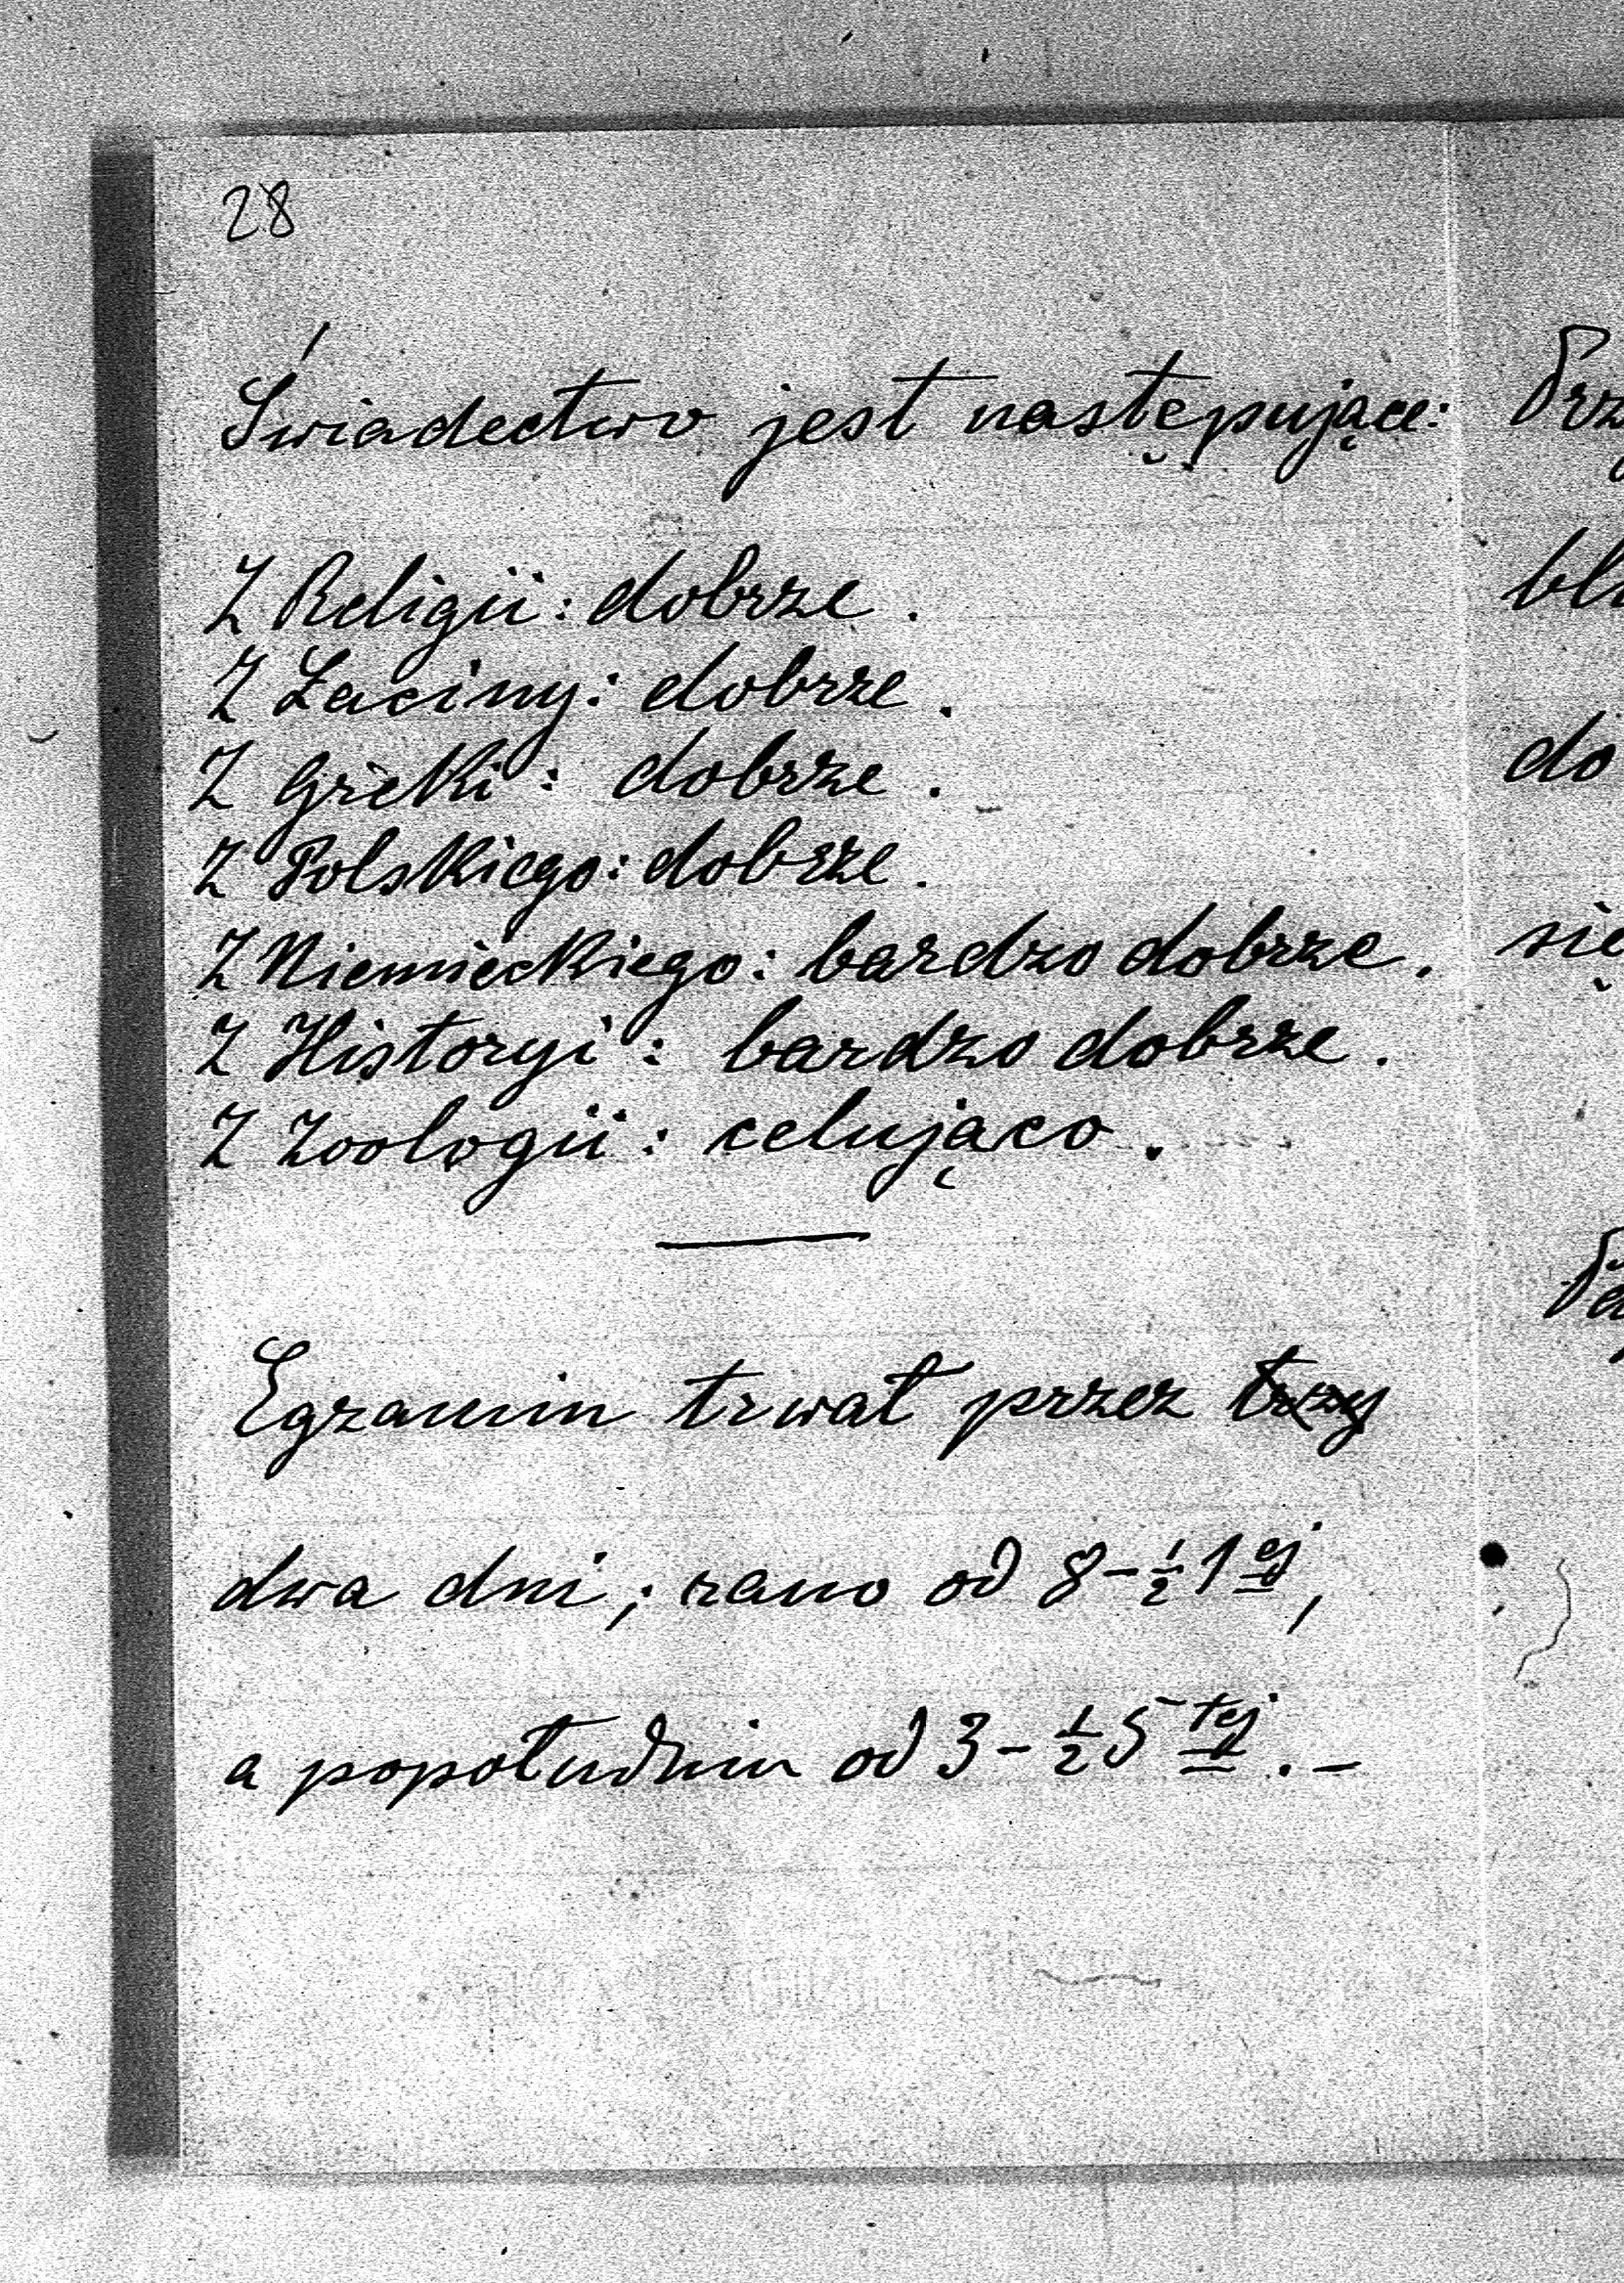 28
Świadectwo jest następujące:
Z Religii: dobrze.
Z Łaciny: dobrze.
Z Greki: dobrze.
Z Polskiego: dobrze.
Z Niemieckiego: bardzo dobrze.
Z Historyi: bardzo dobrze.
Z Zoologii: celująco.
Egzamin trwał przez trzy
dwa dni; rano od 8-½1ej,
a popołudniu od 3-½5tej.-
do
się